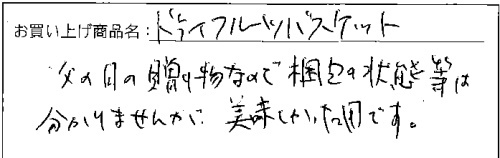 お買い上げ商品名：ドライフルーツバスケット
父の日の贈り物なので梱包の状態等は
分かりませんが、美味しかった用です。